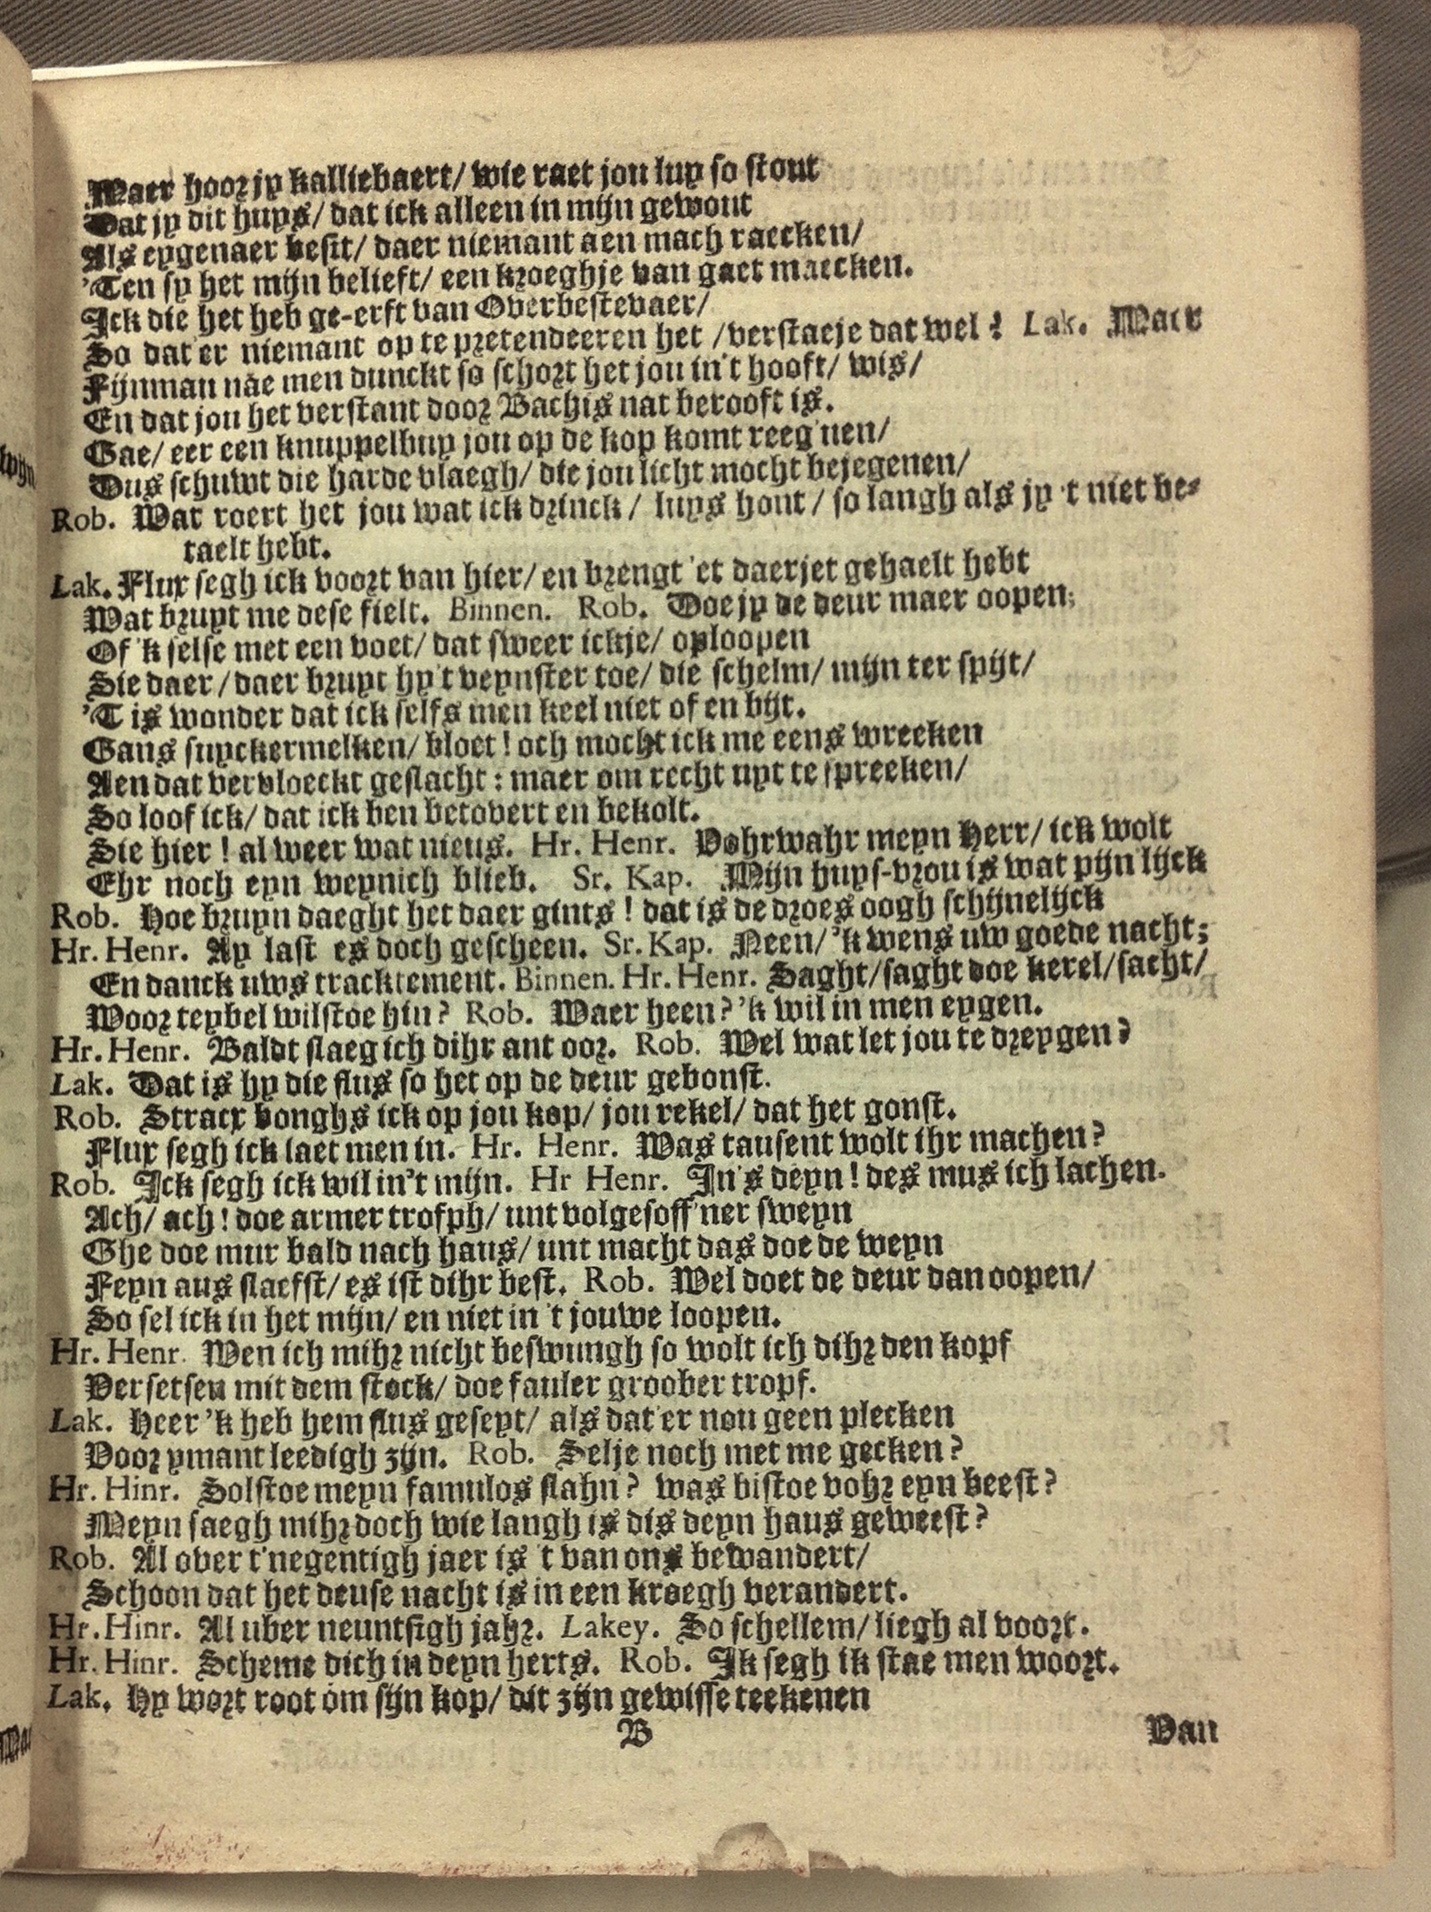 Maer hoor jy kalliebaert/ wie raet jou luy so stout
Dat jy dit huys/ dat ick alleen in mijn gewout
Als eygenaer besit/ daer niemant aen mach raecken/
'Ten sy het mijn belieft/ een kroeghje van gaet maecken.
Ick die het heb ge-erft van Overbestevaer/
So dat'er niemant op te pretendeeren het /verstaeje dat wel? Lak. Maer
Fijnman nae men dunckt so schort het jou in't hooft/ wis/
En dat jou het verstant door Bachis nat berooft is.
Gae/ eer een knuppelbuy jou op de kop komt reeg'nen/
Dus schuwt die harde vlaegh/ die jou licht mocht bejegenen/
Rob. Wat roert het jou wat ick drinck/ luys hont/ so langh als jy 't niet be-
taelt hebt.
Lak. Flux segh ick voort van hier/ en brengt 'et daerjet gehaelt hebt
Wat bruyt me dese fielt. Binnen. Rob. Doe jy de deur maer oopen;
Of 'k selse met een voet/ dat sweer ickje/ oploopen
Sie daer/ daer bruyt hy 't veynster toe/ die schelm/ mijn ter spijt/
'T is wonder dat ick selfs men keel niet of en bijt.
Gans suyckermelken/ bloet! och mocht ick me eens wreeken
Aen dat vervloeckt geslacht: maer om recht uyt te spreeken/
So loof ick/ dat ick ben betovert en bekolt.
Sie hier! al weer wat nieus. Hr. Henr. Vohrwahr meyn Herr/ ick wolt
Ehr noch eyn weynich blieb. Sr. Kap. Mijn huys-vrou is wat pijn'lijck
Rob. Hoe bruyn daeght het daer gints! dat is de droes oogh schijnelijck
Hr. Henr. Ay last es doch gescheen. Sr. Kap. Neen/ 'k wens uw goede nacht;
En danck uws tracktement. Binnen. Hr. Henr. Saght/saght doe kerel/sacht/
Woor teybel wilstoe hin? Rob. Waer heen? 'k wil in men eygen.
Hr. Henr. Baldt slaeg ich dihr ant oor. Rob. Wel wat let jou te dreygen?
Lak. Dat is hy die flus so het op de deur gebonst.
Rob. Stracx bonghs ick op jou kop/ jou rekel/ dat het gonst.
Flux segh ick laet men in. Hr. Henr. Was tausent wolt ihr machen?
Rob. Ick segh ick wil in't mijn. Hr Henr. In's deyn! des mus ich lachen.
Ach/ ach! doe armer trofph/ unt volgesoff'ner sweyn
Ghe doe mur bald nach haus/ unt macht das doe de weyn
Feyn aus slaefst/ es ist dihr best. Rob. Wel doet de deur dan oopen/
So sel ick in het mijn/ en niet in 't jouwe loopen.
Hr. Henr. Wen ich mihr nicht beswungh so wolt ich dihr den kopf
Versetsen mit dem stock/ doe fauler groober tropf.
Lak. Heer 'k heb hem flus geseyt/ als dat'er nou geen plecken
Voor ymant leedigh zijn. Rob. Selje noch met me gecken?
Hr. Hinr. Solstoe meyn famulos slahn? was bistoe vohr eyn beest?
Meyn saegh mihr doch wie langh is dis deyn haus geweest?
Rob. Al over t'negentigh jaer is 't van ons bewandert/
Schoon dat het deuse nacht is in een kroegh verandert.
Hr. Hinr. Al uber neuntsigh jahr. Lakey. So schellem/ liegh al voort.
Hr. Hinr. Scheme dich in deyn herts. Rob. Ik segh ik stae men woort.
Lak. Hy wort root om sijn kop/ dit zijn gewisse teekenen
B
Van